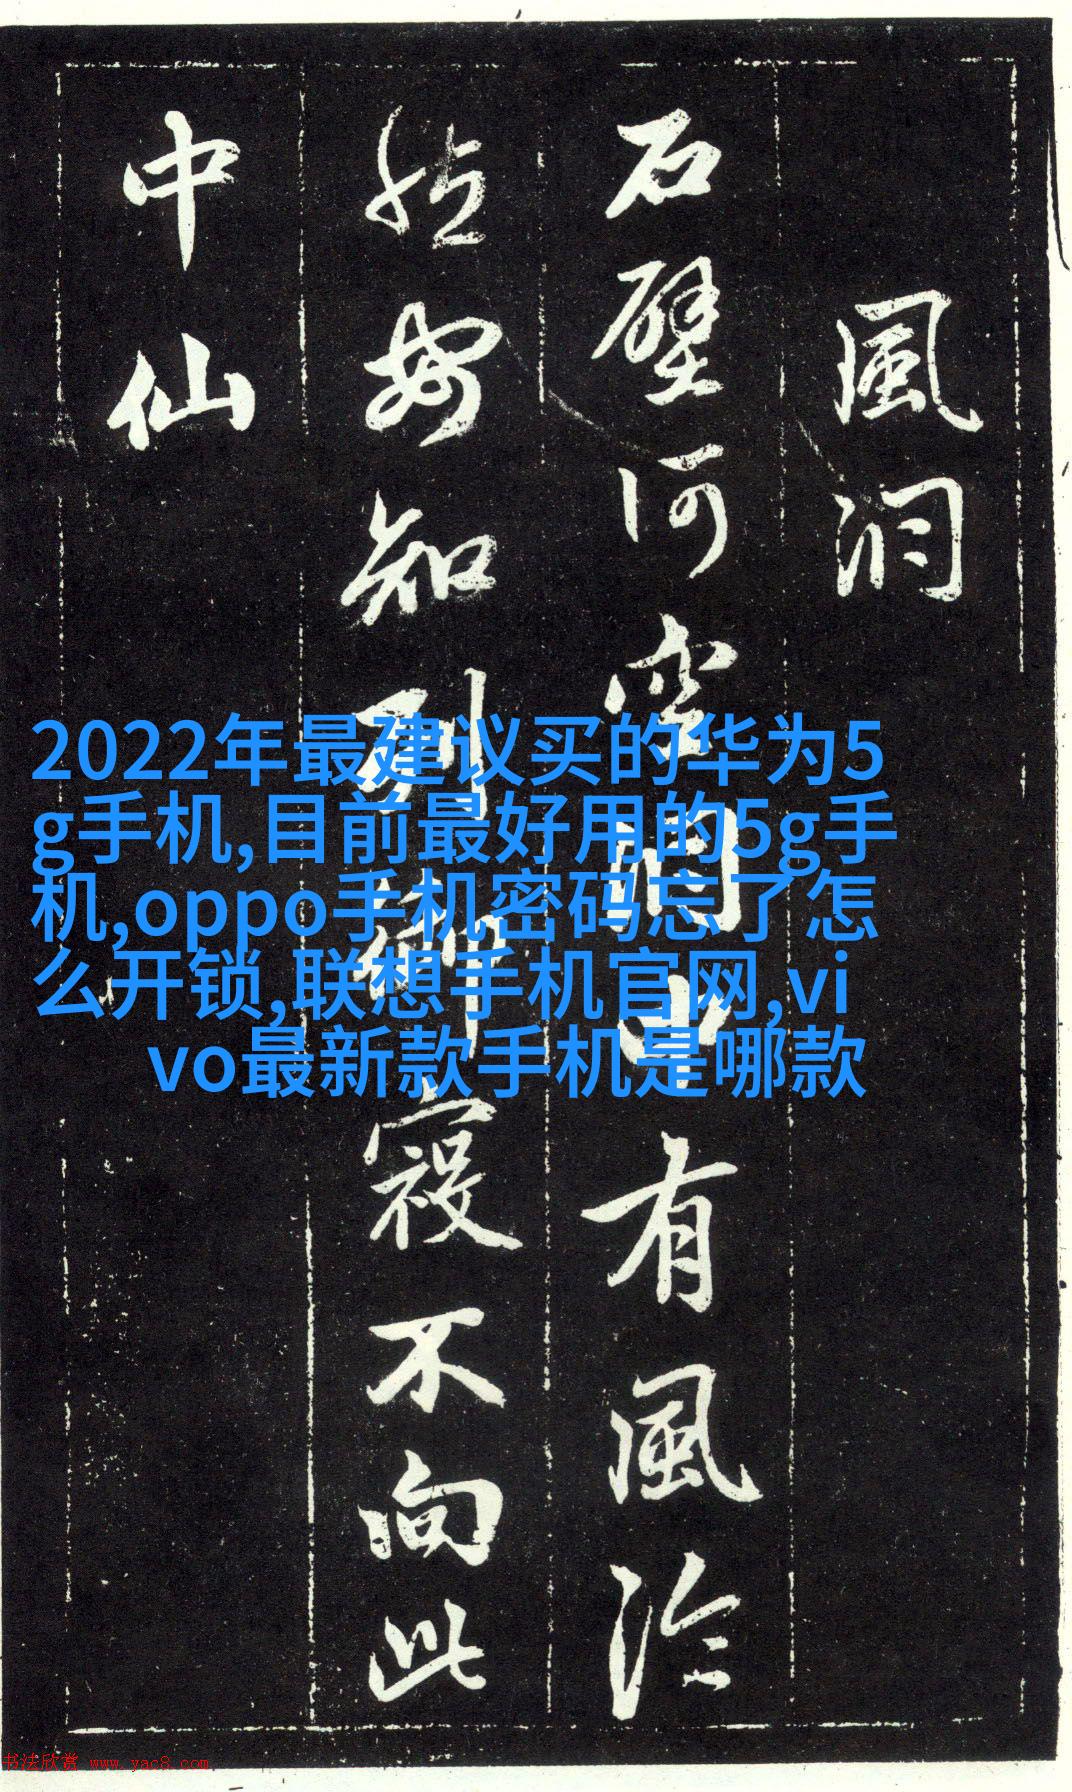 風洞
石壁何空洞中有風泠
然安知列禦寇不向此
中仙
2022年最建议买的华为5
g手机,目前最好用的5g手
机,oppo手机密码忘了怎
么开锁,联想手机官网,vi
vo最新款手机是哪款
书法欣赏 www.yac8.com